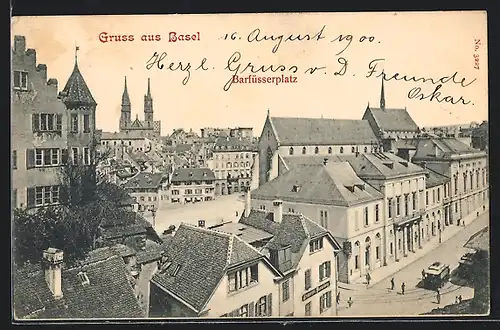 Gruss aus Basel
16. August 1900.
Herzl. Gruss v. D. Freunde
Oskar.
Barfüsserplatz
No. 3207